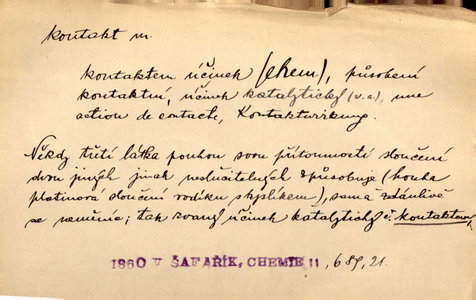 kontakt m.
kontaktem účinek (chem.), působení
kontaktní, účinek katalytický (v. a.), une
action de contacte, Kontaktwirkung.
Někdy třetí látka pouhou svou přítomností sloučení
dvou jiných jinak neslučitelných způsobuje (houba
platinová sloučení vodíku s kyslíkem), sama zdánlivě
se neměníc; tak zvaný účinek katalytický č. kontaktový
1860 V ŠAFAŘÍK, CHEMIE 11, 689, 21.